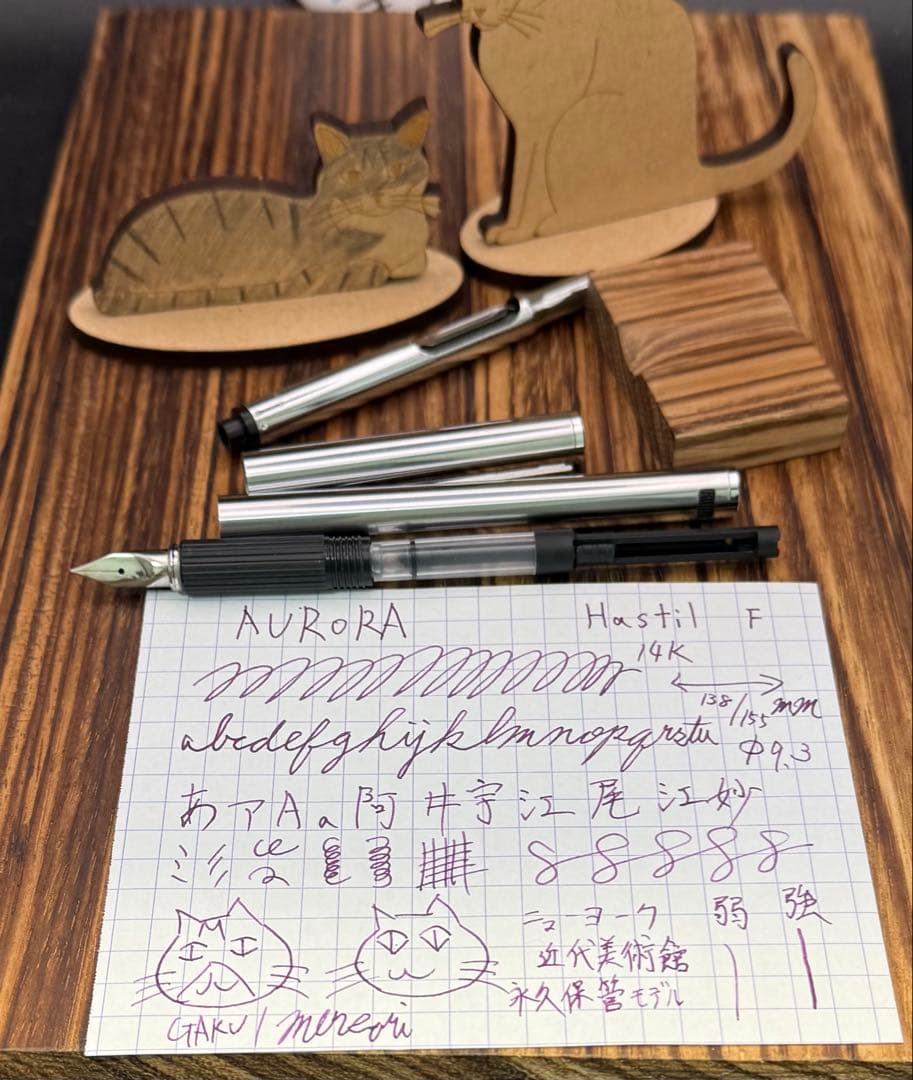 AURORA Hastil F
14K
138/155mm
abcdefghijklmnopqrstu φ9.3
あアAa阿井宇江尾江妙
ニューヨーク 弱 強
近代美術館
永久保管モデル
GAKU / mereori